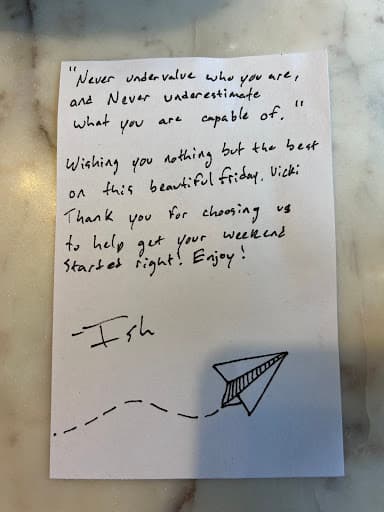 "Never undervalue who you are,
and Never underestimate
what you are capable of."
Wishing you nothing but the best
on this beautiful friday, Vicki
Thank you for choosing us
to help get your weekend
started right! Enjoy!
-Ish